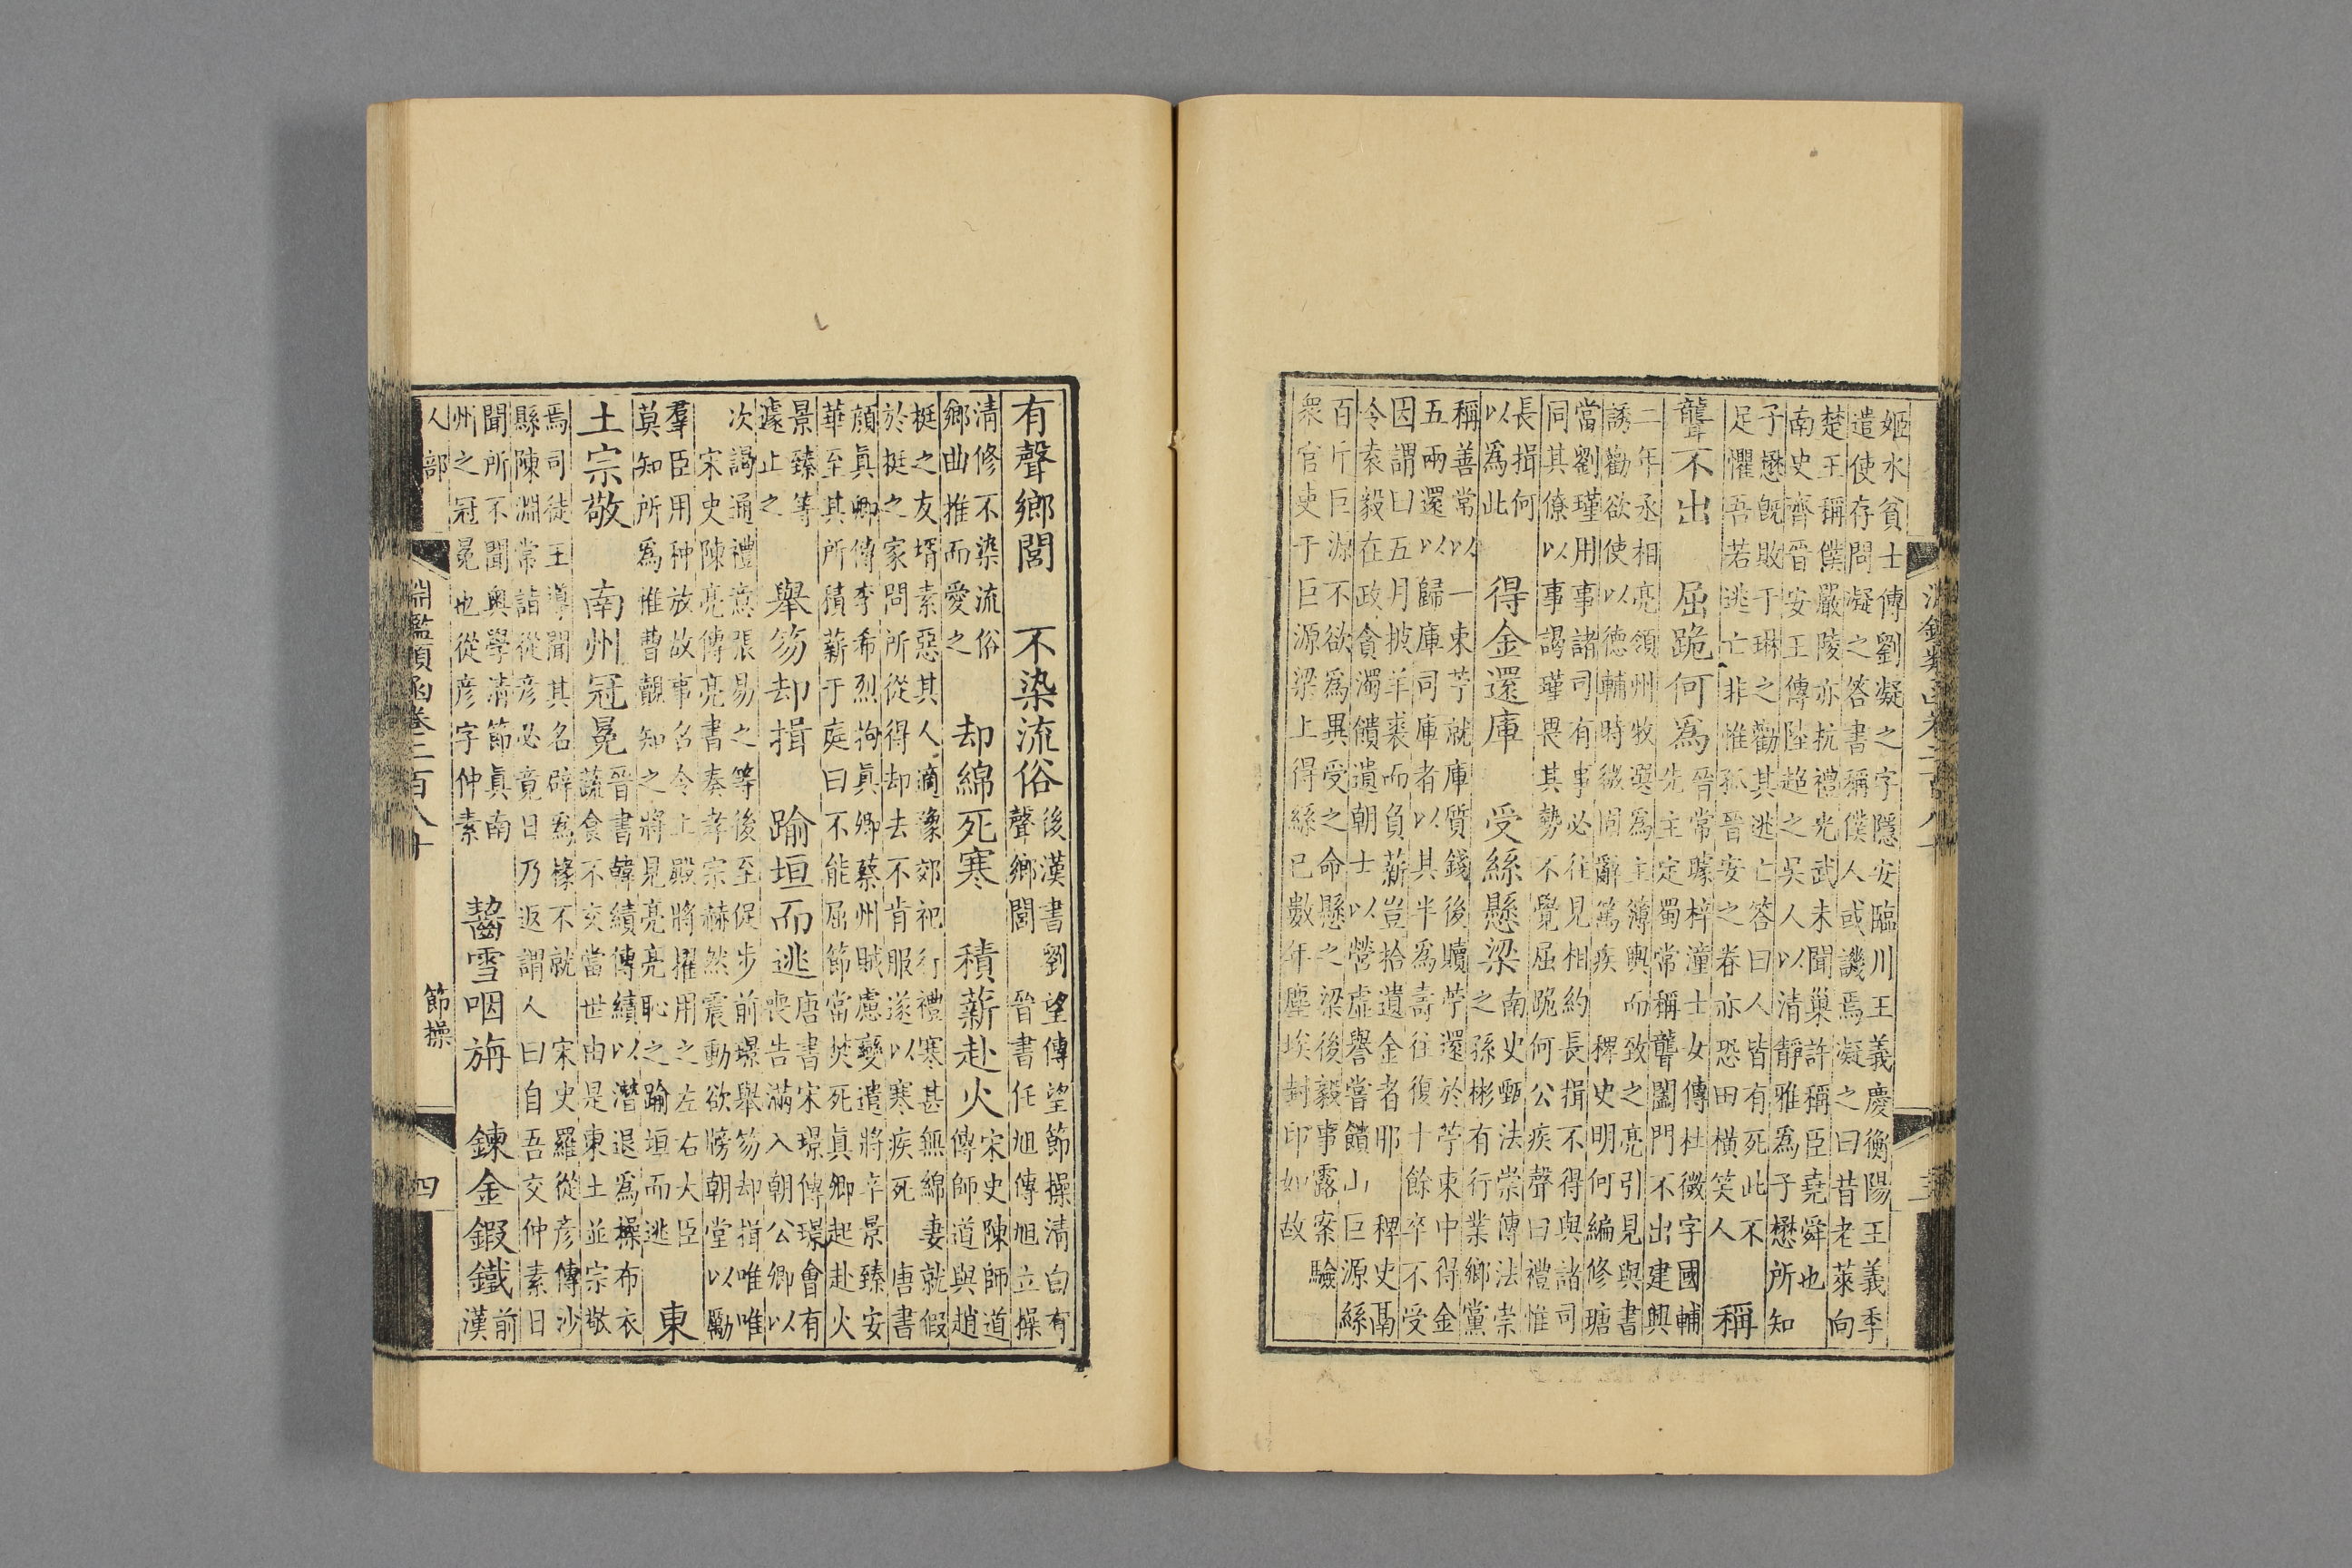 淵鑑類函卷二百八十 三
姬水貧士傳劉凝之字隱安臨川王義慶衡陽王義季
遣使存問凝之答書稱僕人或譏焉凝之曰昔老萊向
楚王稱僕嚴陵亦抗禮光武未聞巢許稱臣堯舜也
南史齊晉安王傳陸超之吳人以清靜雅爲子懋所知
子懋既敗于琳之勸其逃亡答曰人皆有死此不
足懼吾若逃亡非惟孤晉安之眷亦恐田橫笑人
稱
聾不出 屈跪何爲
晉常璩梓潼士女傳杜微字國輔
先主定蜀常稱聾闔門不出建興
二年丞相亮領州牧選爲主簿輿而致之亮引見與書
誘勸欲使以德輔時微固辭篤疾 稗史明何編修瑭
當劉瑾用事諸司有事必往見相約長揖不得與諸司
同其僚以事謁瑾畏其勢不覺屈跪何公疾聲曰禮惟
長揖何
以爲此
得金還庫 受絲懸梁
南史甄法崇傳法崇
之孫彬有行業鄉黨
稱善常以一束苧就庫質錢後贖苧還於苧束中得金
五兩還以歸庫司庫者以其半爲壽往復十餘卒不受
因謂曰五月披羊裘而負薪豈拾遺金者耶 稗史鬲
令袁毅在政貪濁饋遺朝士以營虛譽嘗饋山巨源絲
百斤巨源不欲爲異受之命懸之梁後毅事露案驗
衆官吏于巨源梁上得絲已數年塵埃封印如故
有聲鄉閭 不染流俗
後漢書劉望傳望節操清白有
聲鄉閭 晉書任旭傳旭立操
清修不染流俗
鄉曲推而愛之
却綿死寒 積薪赴火
宋史陳師道
傳師道與趙
挺之友壻素惡其人適豫郊祀行禮寒甚無綿妻就假
於挺之家問所從得却去不肯服遂以寒疾死 唐書
顏眞卿傳李希烈拘眞卿蔡州賊慮變遣將辛景臻安
華至其所積薪于庭曰不能屈節當焚死眞卿起赴火
景臻等
遽止之
舉笏却揖 踰垣而逃
唐書宋璟傳璟會有
喪告滿入朝公卿以
次謁通禮意張易之等後至促步前璟舉笏却揖唯唯
宋史陳亮傳亮書奏孝宗赫然震動欲牓朝堂以勵
羣臣用种放故事名令上殿將擢用之左右大臣
莫知所爲惟曹覿知之將見亮亮恥之踰垣而逃
東
土宗敬 南州冠冕
晉書韓績傳績以潛退爲操布衣
蔬食不交當世由是東土並宗敬
焉司徒王導聞其名辟爲掾不就 宋史羅從彦傳沙
縣陳淵常詣從彦必竟日乃返謂人曰自吾交仲素日
聞所不聞奥學清節眞南
州之冠冕也從彦字仲素
齧雪咽旃 鍊金鍛鐵
前
漢
人部 淵鑑類函卷二百八十 節操 四